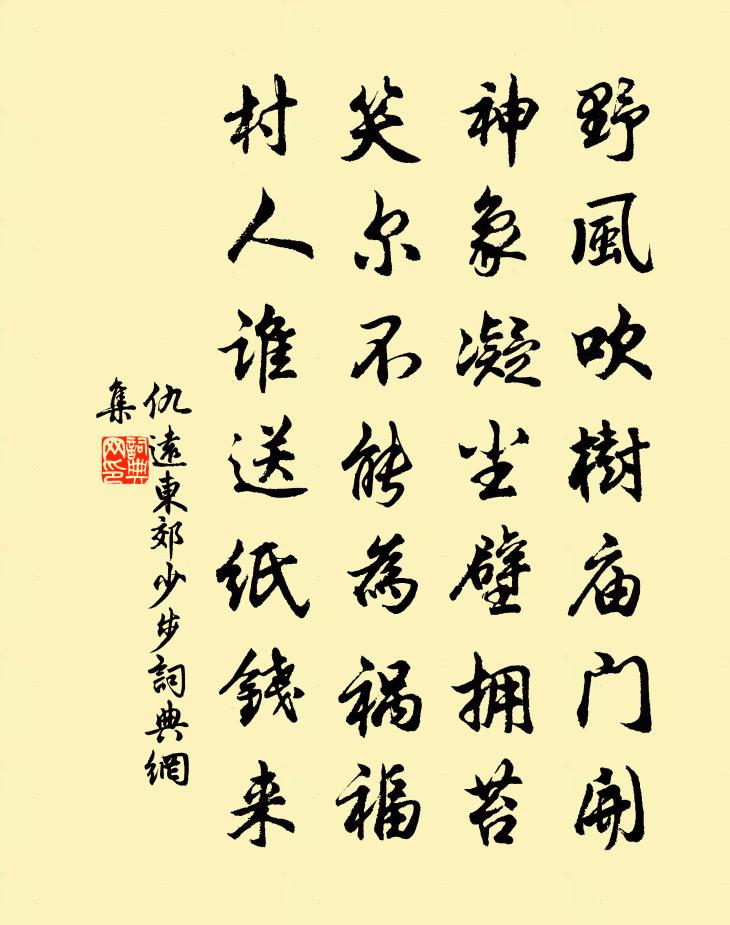 野風吹樹庙门開
神象凝尘壁拥苔
笑尔不能為祸福
村人谁送纸錢来
仇遠東郊少步詞典網
集
詞典
网印